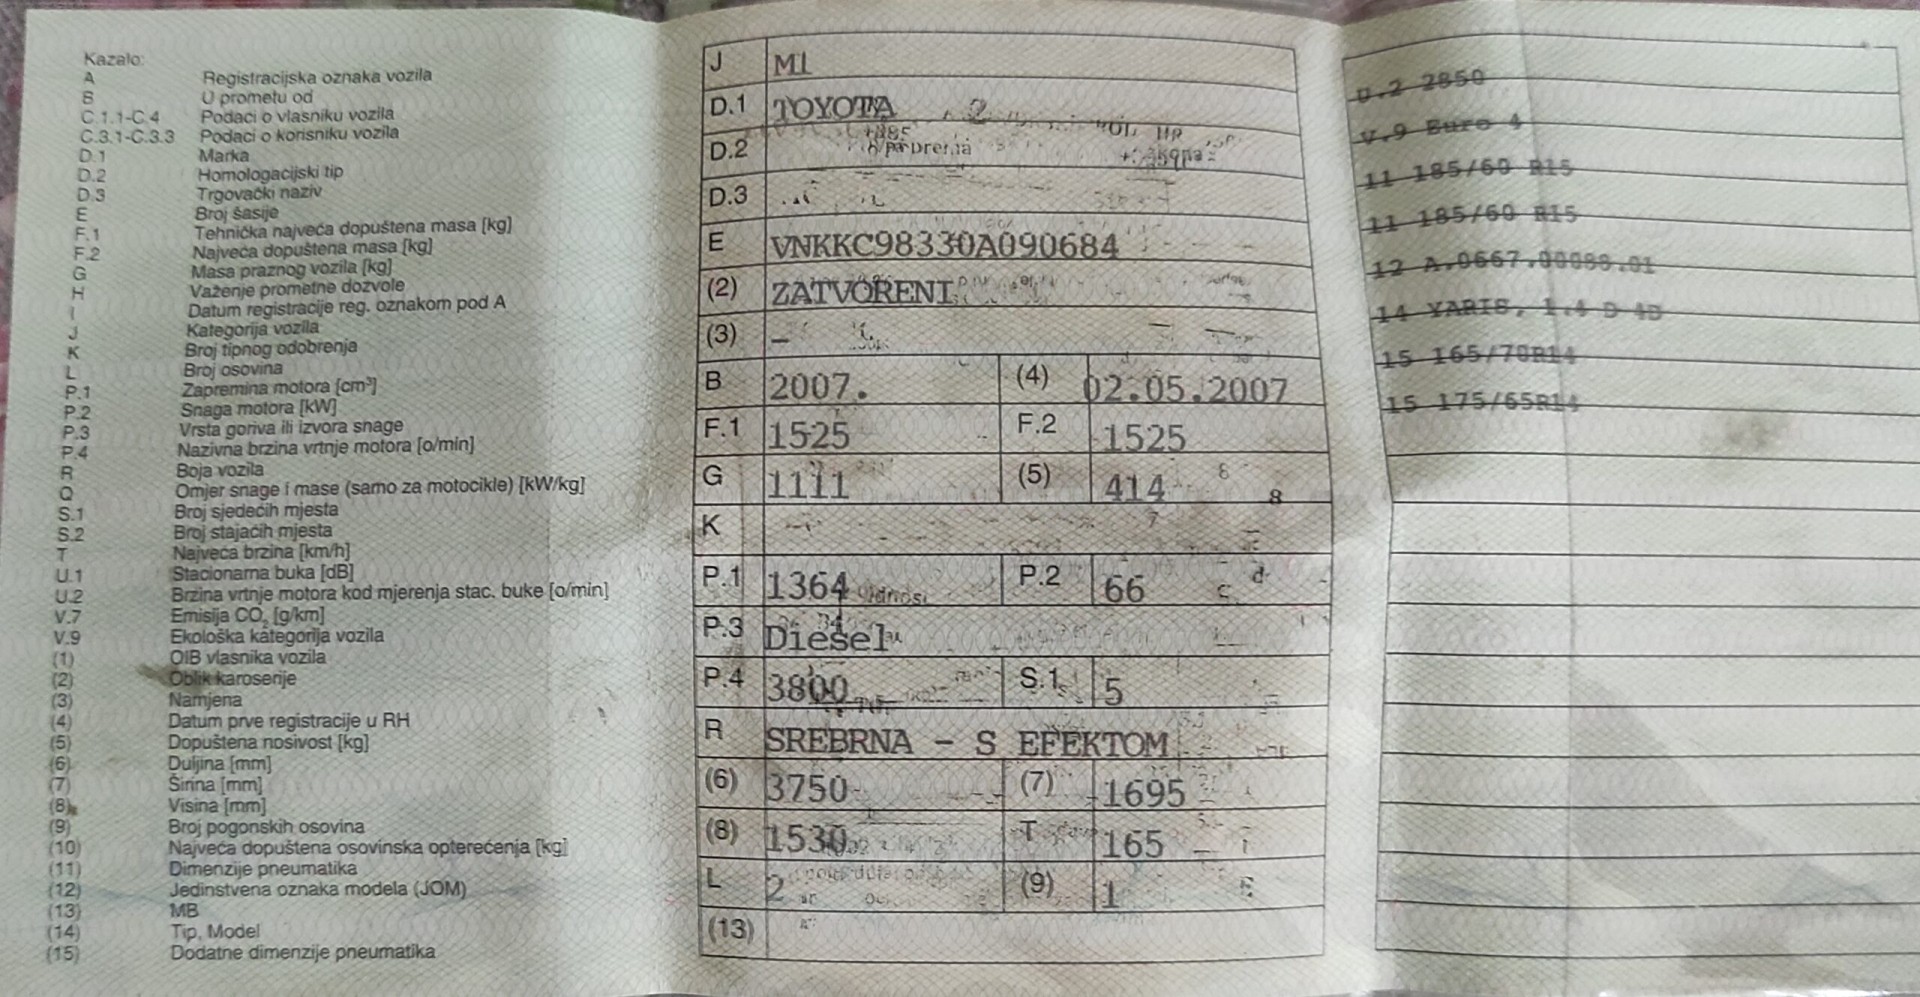 Kazalo:
A Registracijska oznaka vozila
B U prometu od
C.1.1-C.4 Podaci o vlasniku vozila
C.3.1-C.3.3 Podaci o korisniku vozila
D.1 Marka
D.2 Homologacijski tip
D.3 Trgovački naziv
E Broj šasije
F.1 Tehnička najveća dopuštena masa [kg]
F.2 Najveća dopuštena masa [kg]
G Masa praznog vozila [kg]
H Važenje prometne dozvole
I Datum registracije reg. oznakom pod A
J Kategorija vozila
K Broj tipnog odobrenja
L Broj osovina
P.1 Zapremina motora [cm³]
P.2 Snaga motora [kW]
P.3 Vrsta goriva ili izvora snage
P.4 Nazivna brzina vrtnje motora [o/min]
R Boja vozila
Q Omjer snage i mase (samo za motocikle) [kW/kg]
S.1 Broj sjedećih mjesta
S.2 Broj stajaćih mjesta
T Najveća brzina [km/h]
U.1 Stacionarna buka [dB]
U.2 Brzina vrtnje motora kod mjerenja stac. buke [o/min]
V.7 Emisija CO₂ [g/km]
V.9 Ekološka kategorija vozila
(1) OIB vlasnika vozila
(2) Oblik karoserije
(3) Namjena
(4) Datum prve registracije u RH
(5) Dopuštena nosivost [kg]
(6) Duljina [mm]
(7) Širina [mm]
(8) Visina [mm]
(9) Broj pogonskih osovina
(10) Najveća dopuštena osovinska opterećenja [kg]
(11) Dimenzije pneumatika
(12) Jedinstvena oznaka modela (JOM)
(13) MB
(14) Tip, Model
(15) Dodatne dimenzije pneumatika
J M1
D.1 TOYOTA
D.2
D.3
E VNKKC98330A090684
(2) ZATVORENI
(3) –
B 2007. (4) 02.05.2007
F.1 1525 F.2 1525
G 1111 (5) 414
K
P.1 1364 P.2 66
P.3 Diesel
P.4 3800 S.1 5
R SREBRNA - S EFEKTOM
(6) 3750 (7) 1695
(8) 1530 T 165
L 2 (9) 1
(13)
U.2 2850
V.9 Euro 4
11 185/60 R15
11 185/60 R15
12 A.0667.00088.01
14 YARIS, 1.4 D-4D
15 165/70R14
15 175/65R14